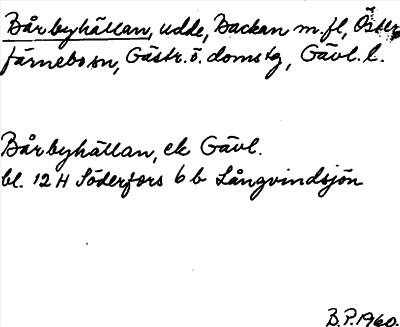 Bårbyhällan, udde, Backan m.fl, Öster
färnebo sn, Gästr. ö. domsg, Gävl. l.
Bårbyhällan, ek Gävl.
bl. 12 H Söderfors 6 b Långvindsjön
B.P. 1960.